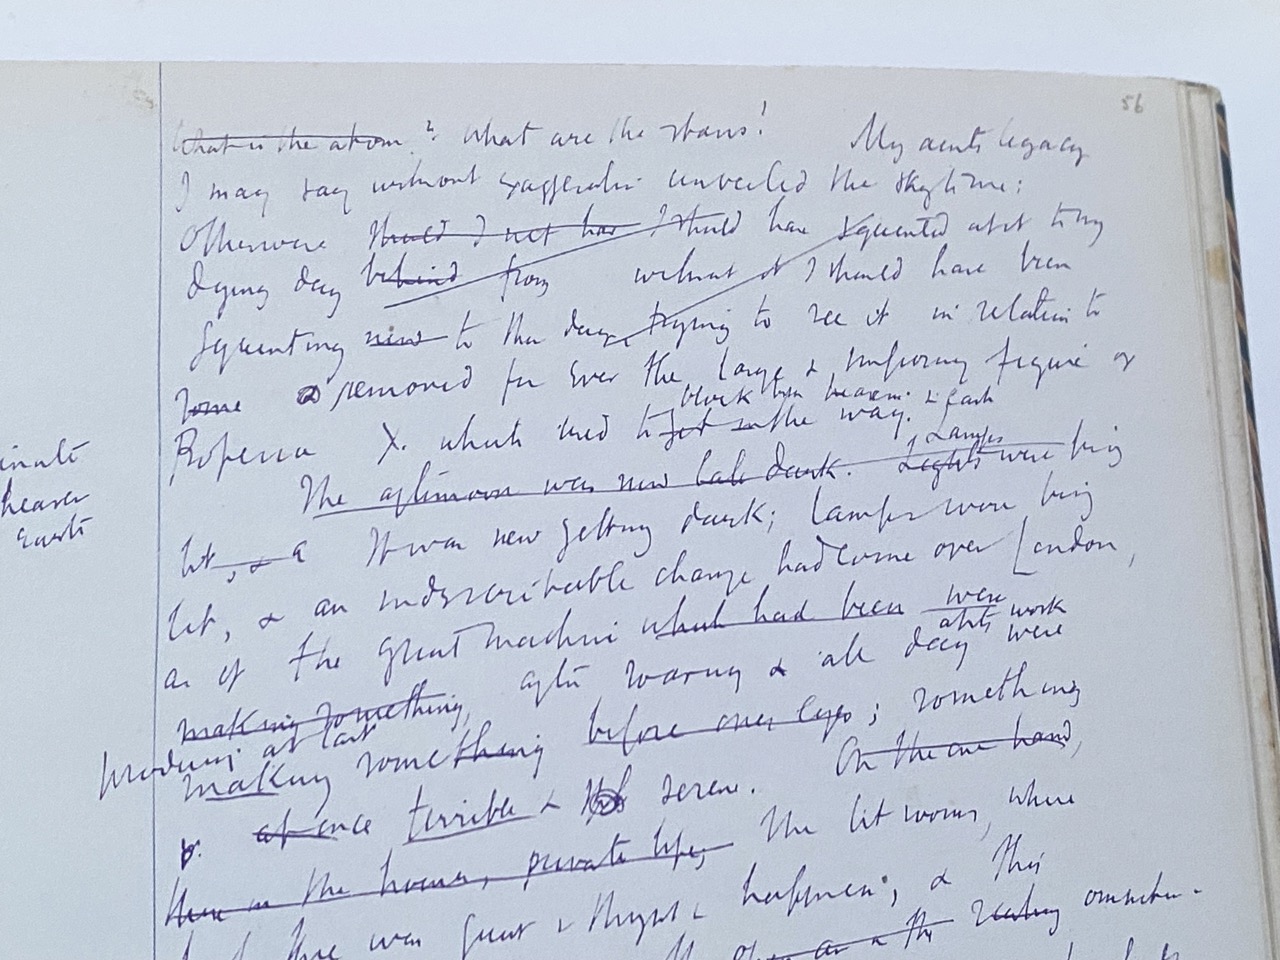 56
What is the atom? What are the stars! My aunts legacy
I may say without exaggeration unveiled the sky to me:
Otherwise should I not have I should have squinted at it to my
dying day behind from without it I should have been
Squinting to the day trying to see it in relation to
some & removed for ever the large & imposing figure of
block between heaven & earth
Professor X. which used to get in the way.
inate
heaven
earth
The afternoon was now late dark. Lights were being
Lamps
lit, & a It was now getting dark; lamps were being
lit, & an indescribable change had come over London,
as if the great machine which had been were
at its work
making something, after roaring & all day were
producing at last
making something before our eyes; something
at once terrible & serene. On the one hand,
there in the houses, private life, The lit rooms, where
there was quiet & happiness; & this
as in the reading